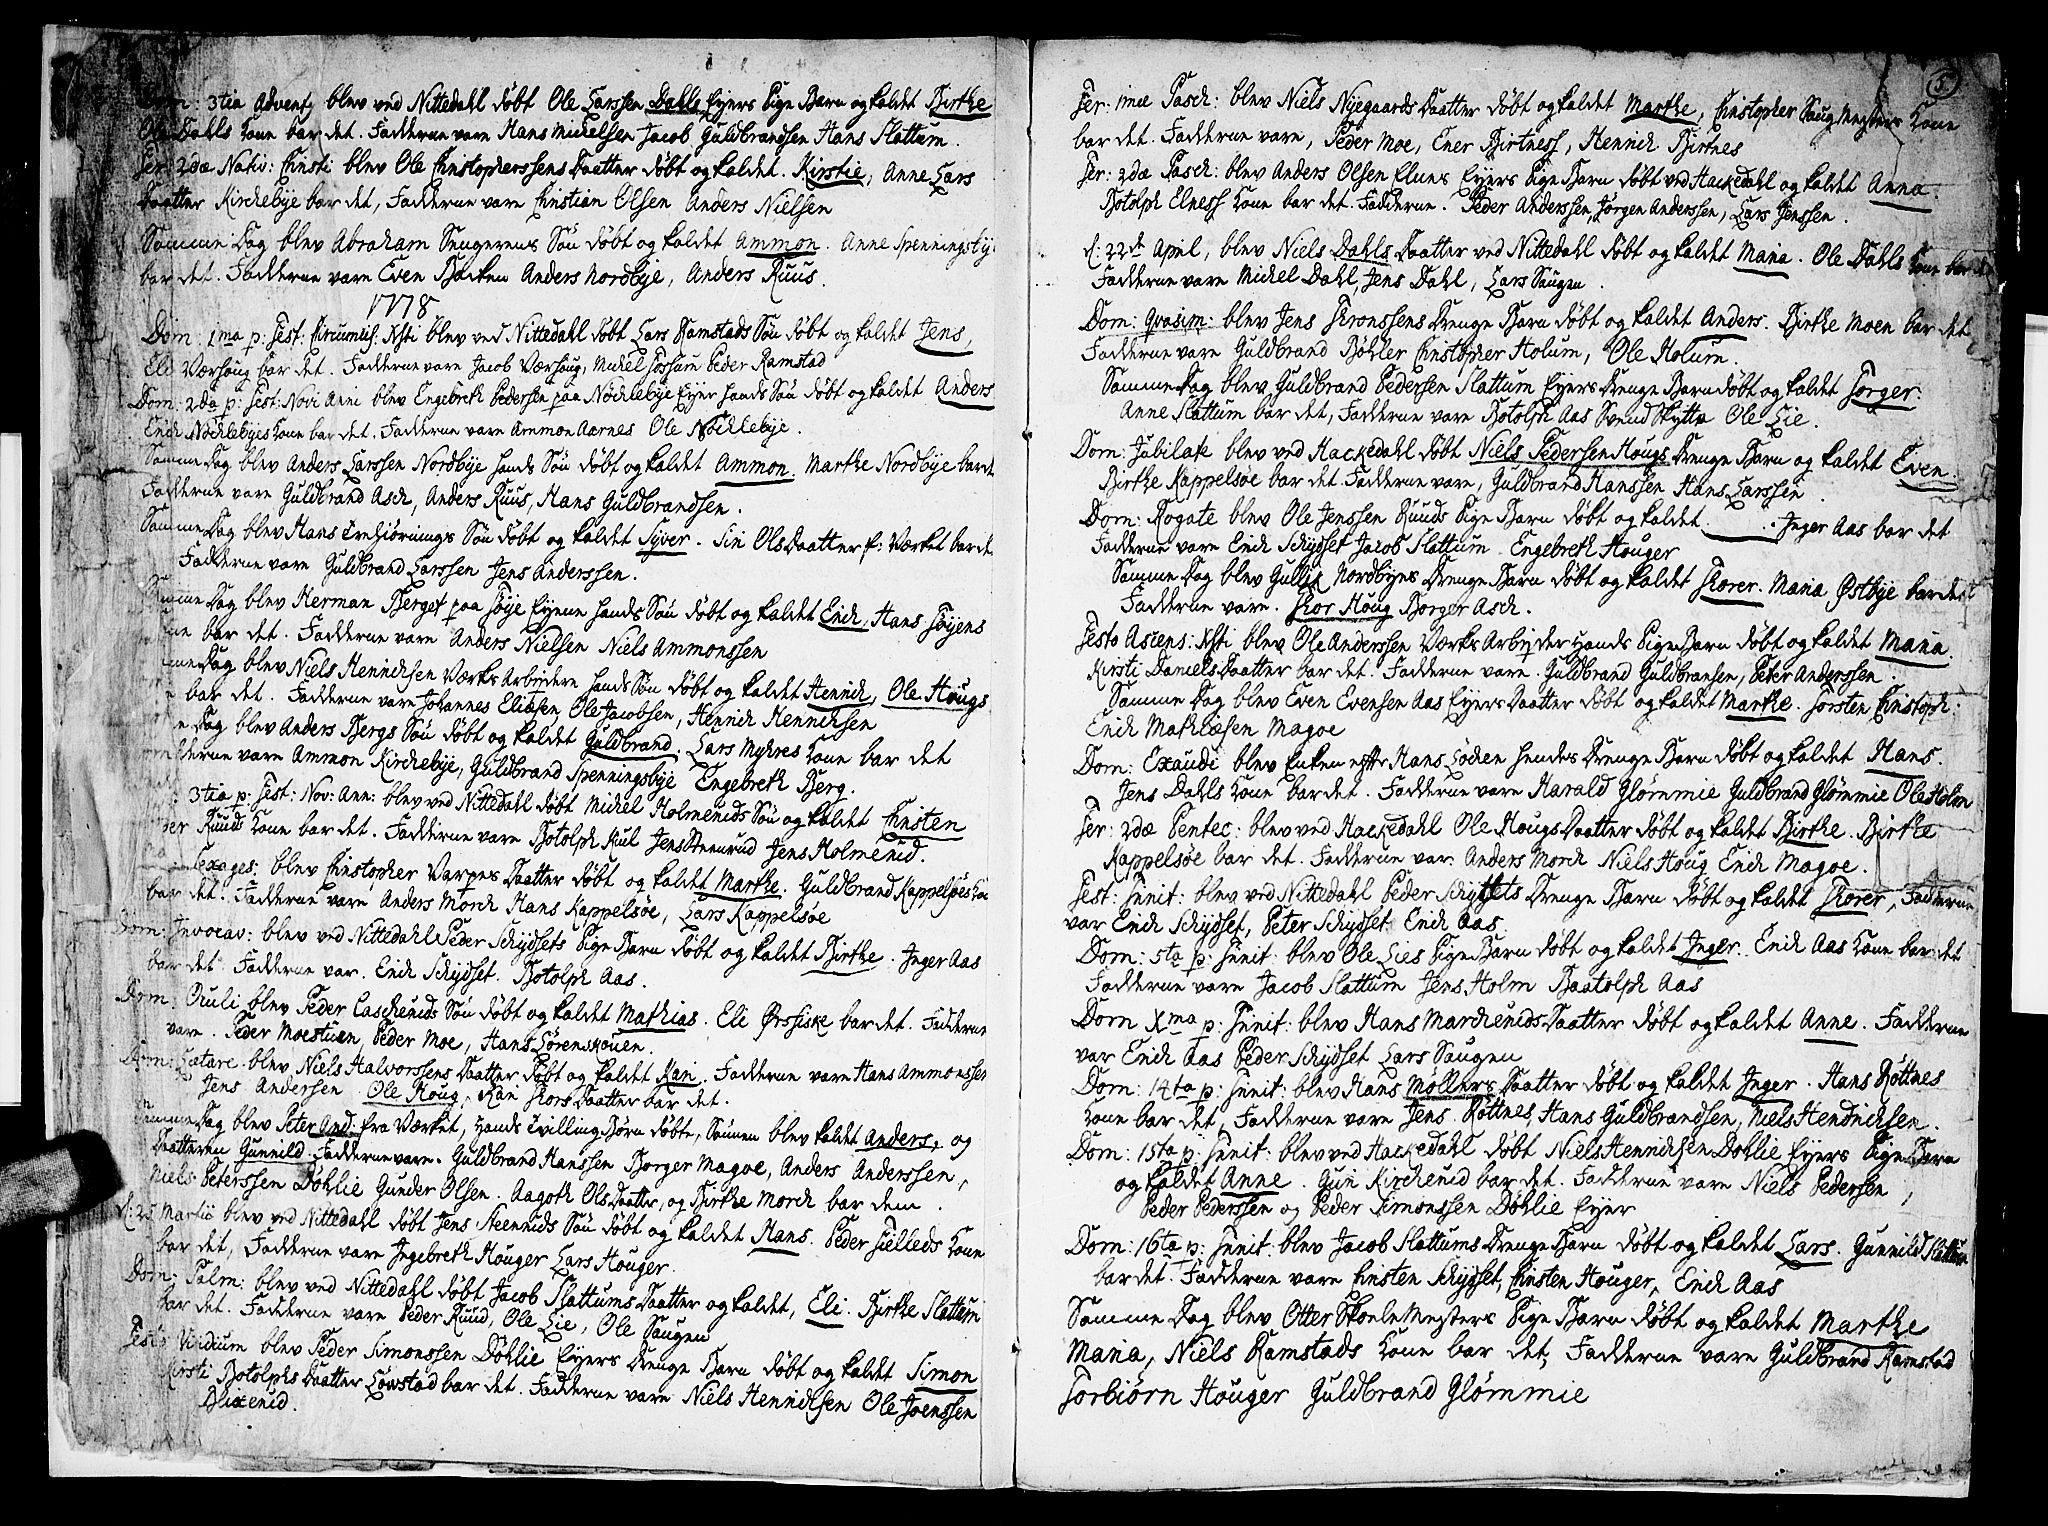 Dom: 3tia Advent, blev ved Nittedahl døbt Ole Larssen Dahls Eyers Pige Barn og kaldet Birthe
Ole Dahls Kone bar det. Fadderne vare Hans Mickelsen Jacob Guldbrandsen Hans Slattum.
Fer: 2dæ Nativ: Christi blev Ole Christopherssens Daatter døbt og kaldet. Kirstie, Anne Lars
Daatter Kirchebye bar det, Fadderne vare Christian Olsen Anders Nielsen
Samme Dag blev Abraham Sengerens Søn døbt og kaldet Ammon. Anne Spenningsbye
bar det. Fadderne vare Even Backen Anders Nordbye, Anders Ruus.
1778
Dom: 1ma p: Fest: Circumcis: Xsti blev ved Nittedahl døbt Lars Ramstads Søn døbt og kaldet Jens,
Eli Værhoug bar det. Fadderne vare Jacob Værhoug, Michel Fossum Peder Ramstad
Dom: 2da p: Fest: Novi Anni blev Engebreth Pedersen paa Nøcklebye Eyer hands Søn døbt og kaldet Anders
Erich Nøcklebyes Kone bar det. Fadderne vare Ammon Aarnes Ole Nøcklebye.
Samme Dag blev Anders Larssen Nordbye hands Søn døbt og kaldet Ammon. Marthe Nordbye bar det
Fadderne vare Guldbrand Asch, Anders Ruus, Hans Guldbrandsen.
Samme Dag blev Hans Trehiørnings Søn døbt og kaldet Syver. Siri Ols Daatter f: Værket bar det
Fadderne vare Guldbrand Larssen Jens Anderssen.
Samme Dag blev Herman Berget paa Søye Eyerne hands Søn døbt og kaldet Erich, Hans Søyens
bar det. Fadderne vare Anders Nielsen Niels Ammonssen
Dag blev Niels Henrichsen Værks Arbeydere hands Søn døbt og kaldet Henrich, Ole Hougs
bar det. Fadderne vare Johannes Eliæsen Ole Jacobsen, Henrich Henrichsen
Dag blev Anders Bergs Søn døbt og kaldet Guldbrand. Lars Myhres Kone bar det
Fadderne vare Ammon Kirchebye, Guldbrand Spenningsbye Engebreth Berg.
3tia p: Fest: Nov: Ann: blev ved Nittedahl døbt Michel Holmeruds Søn og kaldet Christen
Ruuds Kone bar det. Fadderne vare Botolph Kiil Jens Steenrud Jens Holmerud.
Sexages: blev Christopher Varpes Daatter døbt og kaldet Marthe. Guldbrand Kappelsøes Kone
bar det. Fadderne vare Anders Morch Hans Kappelsøe, Lars Kappelsøe
Dom: Invocav: blev ved Nittedahl Peder Schydsets Pige Barn døbt og kaldet Birthe. Inger Aas
bar det Fadderne var. Erich Schydset. Botolph Aas.
Dom: Oculi blev Peder Lascheruds Søn døbt og kaldet Mathias. Eli Ørfiske bar det. Fadderne
vare. Peder Moestuen, Peder Moe, Hans Sørenskouen.
Dom: Lætare blev Niels Halvorssens Daatter døbt og kaldet Kari. Fadderne vare Hans Ammonssen
Jens Andersen Ole Houg, Kari Thors Daatter bar det.
Samme Dag blev Peter And: fra Værket, hands Tvilling Børn døbte, Sønnen blev kaldet Anders, og
Daatteren Gunnild. Fadderne vare. Guldbrand Hanssen Borger Magoe, Anders Anderssen,
Niels Peterssen Døhlie Gunder Olsen. Aagoth Ols Daatter, og Birthe Morch bar dem.
d: 25 Martii blev ved Nittedahl døbt Jens Steenruds Søn døbt og kaldet Hans. Peder Fielleds Kone
bar det, Fadderne vare Ingebreth Houger Lars Houger.
Dom: Palm: blev ved Nittedahl døbt Jacob Slattums Daatter og kaldet, Eli. Birthe Slattum
bar det. Fadderne vare Peder Ruud, Ole Lie, Ole Saugen
Festo Viridium blev Peder Simonssen Døhlie Eyers Drenge Barn døbt og kaldet Simon
Kirsti Botolphs Daatter Løwstad bar det. Fadderne vare Niels Henrichsen Ole Joenssen
Blixerud.
5.
Fer: 1mæ Pasch: blev Niels Nyegaards Daatter døbt og kaldet Marthe, Christopher Saug Mesters Kone
bar det. Fadderne vare, Peder Moe, Ener Birtness, Henrich Birtnes
Fer: 2dæ Pasch: blev Anders Olsen Elnes Eyers Pige Barn døbt ved Hackedahl og kaldet Anna.
Botolph Elness Kone bar det. Fadderne. Peder Anderssen, Jørgen Anderssen, Lars Jenssen.
d: 22de April, blev Niels Dahls Daatter ved Nittedahl døbt og kaldet Maria. Ole Dahls Kone bar det
Fadderne vare Michel Dahl, Jens Dahl, Lars Saugen.
Dom: Qvasim: blev Jens Thronssens Drenge Barn døbt og kaldet Anders. Birthe Moen bar det
Fadderne vare Guldbrand Bøhler Christopher Holum, Ole Holum.
Samme Dag blev Guldbrand Pedersen Slattum Eyers Drenge Barn døbt og kaldet Torger:
Anne Slattum bar det, Fadderne vare Botolph Aas Svend Skytta Ole Lie.
Dom: Jubilate blev ved Hackedahl døbt Niels Pedersen Hougs Drenge Barn og kaldet Even.
Birthe Kappelsøe bar det. Fadderne vare, Guldbrand Hanssen Hans Larssen.
Dom: Rogate blev Ole Jenssen Ruuds Pige Barn døbt og kaldet . Inger Aas bar det
Fadderne vare Erich Schydset Jacob Slattum Engebreth Houger
Samme Dag blev Gullix Nordbyes Drenge Barn døbt og kaldet Thorer. Maria Østbye bar det
Fadderne vare. Thor Houg Borger Asch.
Festo Ascens: Xsti blev Ole Anderssen Værks Arbeyder hands Pige Barn døbt og kaldet Maria.
Kirsti Daniels Daatter bar det. Fadderne vare. Guldbrand Guldbransen, Peder Anderssen.
Samme Dag blev Even Evensen Aas Eyers Daatter døbt og kaldet Marthe. Torsten Christoph:
Erich Mathiæsen Magoe
Dom: Exaudi blev Enken efter Hans Loden hendes Drenge Barn døbt og kaldet Hans.
Jens Dahls Kone bar det. Fadderne vare Harald Glømmie Guldbrand Glømmie Ole Holm
Fer: 2dæ Pentec: blev ved Hackedahl Ole Hougs Daatter døbt og kaldet Birthe. Birthe
Kappelsøe bar det. Fadderne var: Anders Morch Niels Houg Erich Magoe.
Fest: Trinit: blev ved Nittedahl Peder Schydsets Drenge Barn døbt og kaldet Thorer, Fadderne
var Erich Schydset, Peter Schydset Erich Aas.
Dom: 5ta p: Trinit: blev Ole Lies Pige Barn døbt og kaldet Inger. Erich Aas Kone bar det
Fadderne vare Jacob Slattum Jens Holm Baatolph Aas
Dom Xma p: Trinit: blev Hans Marcheruds Daatter døbt og kaldet Anne. Fadderne
var Erich Aas Peder Schydset Lars Saugen
Dom: 14ta p: Trinit: blev Hans Møllers Daatter døbt og kaldet Inger. Hans Røttnes
Kone bar det, Fadderne vare Jens Røttnes, Hans Guldbrandsen, Niels Hendrichsen.
Dom: 15ta p: Trinit: blev ved Hackedahl døbt Niels Henrichsen Døhlie Eyers Pige Barn
og kaldet Anne. Guri Kircherud bar det. Fadderne vare Niels Pedersen,
Peder Pederssen og Peder Simonssen Døhlie Eyer
Dom: 16ta p: Trinit: blev Jacob Slattums Drenge Barn døbt og kaldet Lars. Gunnild Slattum
bar det. Fadderne vare Christen Schydset, Christen Houger, Erich Aas
Samme Dag blev Otter Skole Mesters Pige Barn døbt og kaldet Marthe
Maria, Niels Ramstads Kone bar det, Fadderne vare Guldbrand Ramstad
Torbiørn Houger Guldbrand Glømmie